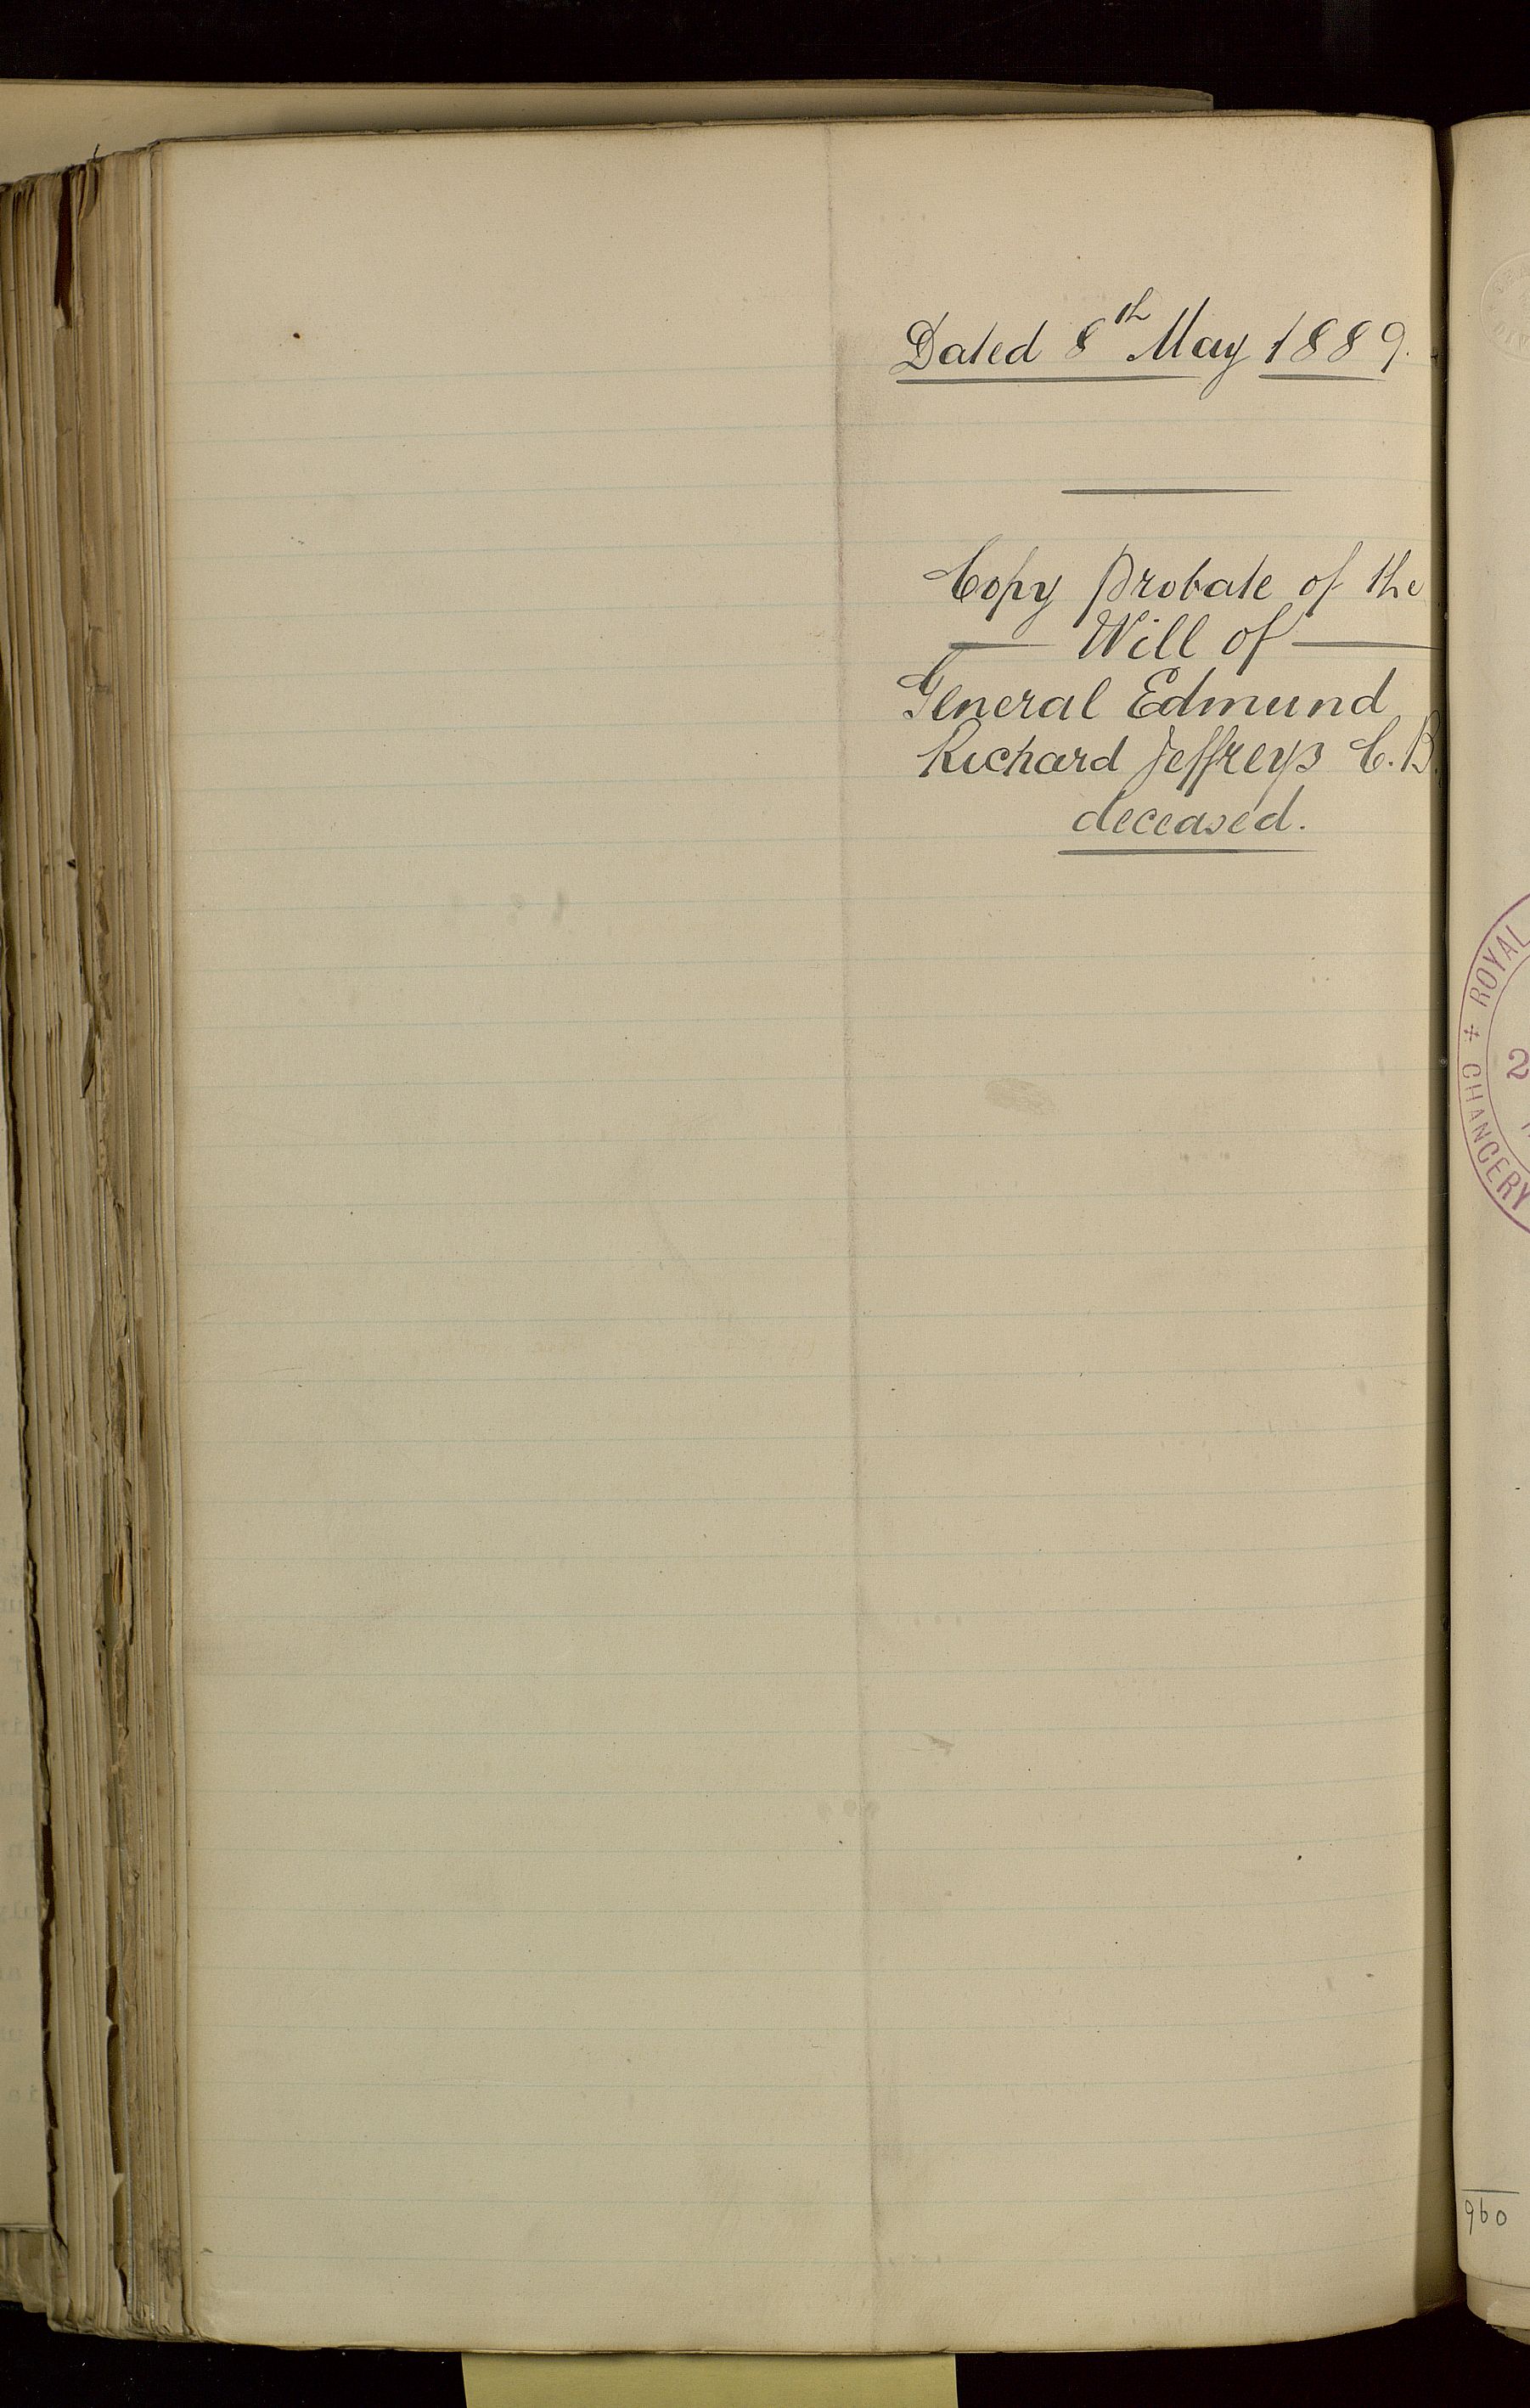 Dated 8th May 1889.
Copy Probate of the
Will of
General Edmund
Richard Jeffreys C.B.
deceased.
ROYAL
CHANCERY
2
960